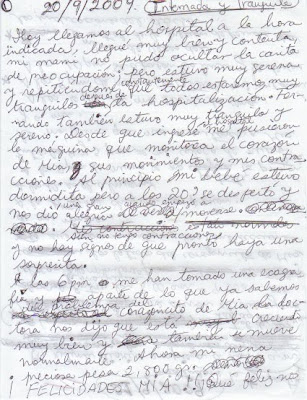 20/9/2009. Internada y tranquila
Hoy llegamos al hospital a la hora
indicada, llegué muy bien y contenta,
mi mami no pudo ocultar la carita
de preocupación, pero estuvo muy serena
y repitiendo que todos estamos muy
tranquilos hospitalización. Fer-
nando también estuvo muy tranquilo y
sereno. Desde que ingresé me pusieron
la máquina que monitorea el corazón
de Mia, sus movimientos y mis contra
cciones. Al principio mi bebé estuvo
dormidita pero a los 20' se despertó y
nos dio alegría de verla moverse.
contracciones normales
y no hay signos de que pronto haiga una
sorpresita.
A las 6 pm me han tomado una ecogra
fía y aparte de lo que ya sabemos
congénito de Mia la doc
tora nos dijo que está creciendo
muy bien y también se mueve
normalmente. Ahora mi nena
preciosa pesa 2,800 gr.
¡FELICIDADES MIA!! ¡que feliz me